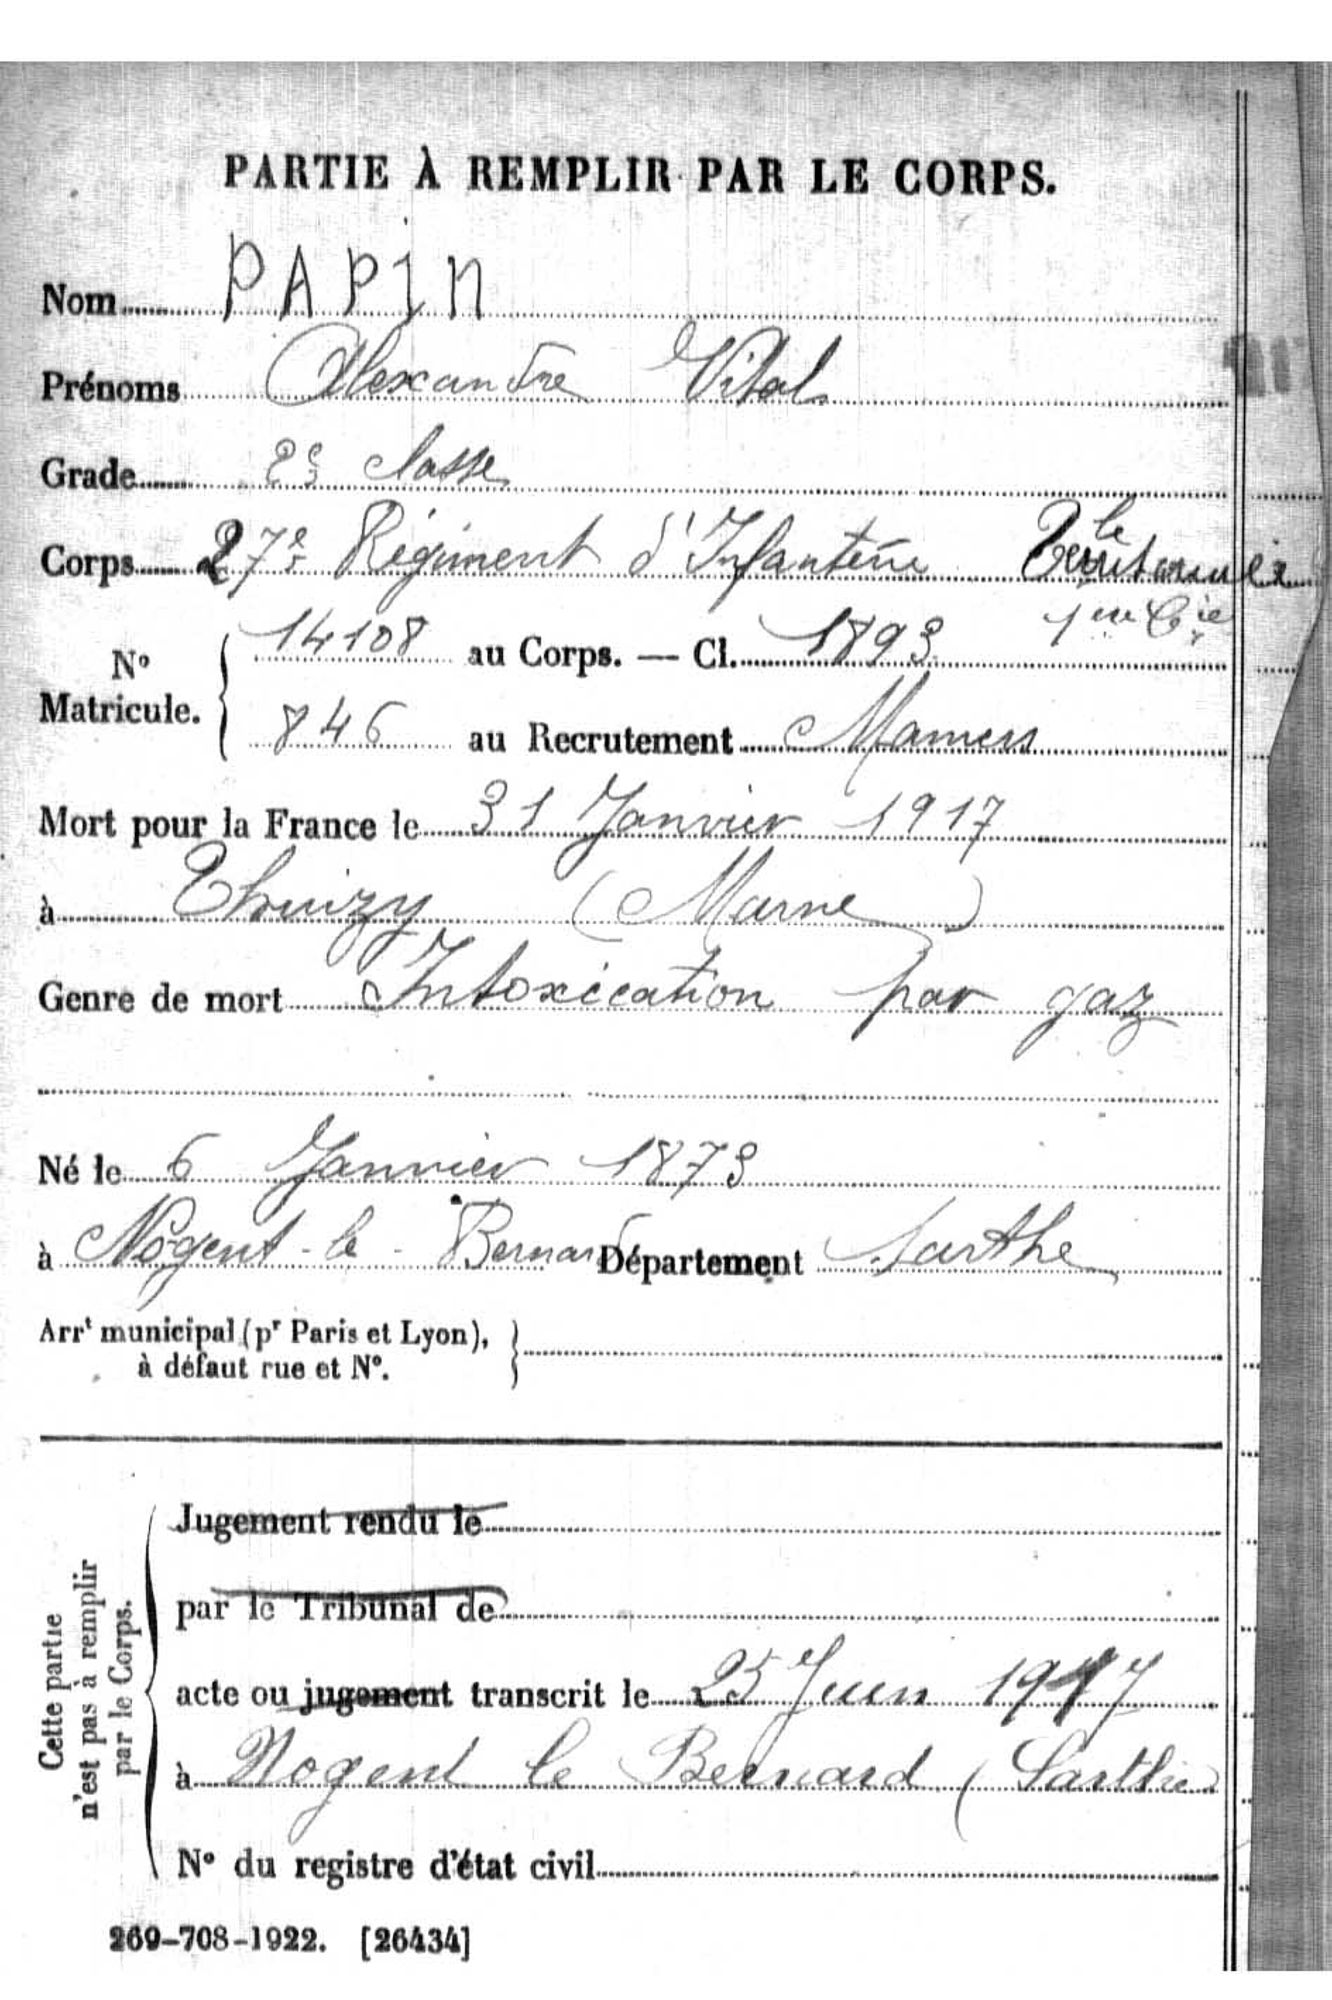 PARTIE À REMPLIR PAR LE CORPS.
Nom PAPIN
Prénoms Alexandre Vital
Grade 2e classe
Corps 27e Régiment d'Infanterie Territoriale
1ere Cie
N° Matricule. 14108 au Corps. — Cl. 1893
846 au Recrutement Mamers
Mort pour la France le 31 Janvier 1917
à Thuizy (Marne)
Genre de mort Intoxication par gaz
Né le 6 Janvier 1873
à Nogent-le-Bernard Département Sarthe
Arrt municipal (pr Paris et Lyon),
à défaut rue et N°.
Cette partie
n'est pas à remplir
par le Corps.
Jugement rendu le
par le Tribunal de
acte ou jugement transcrit le 25 Juin 1917
à Nogent le Bernard (Sarthe)
N° du registre d'état civil
269-708-1922. [26434]